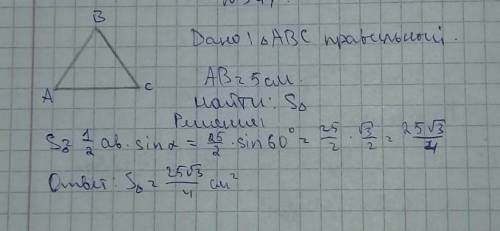 B
A
C
Дано: △ABC правильный.
AB = 5 см.
Найти: S△
Решение:
S△ = 1/2 ab · sin α = 25/2 · sin 60° = 25/2 · √3/2 = 25√3/4
Ответ: S△ = 25√3/4 см²